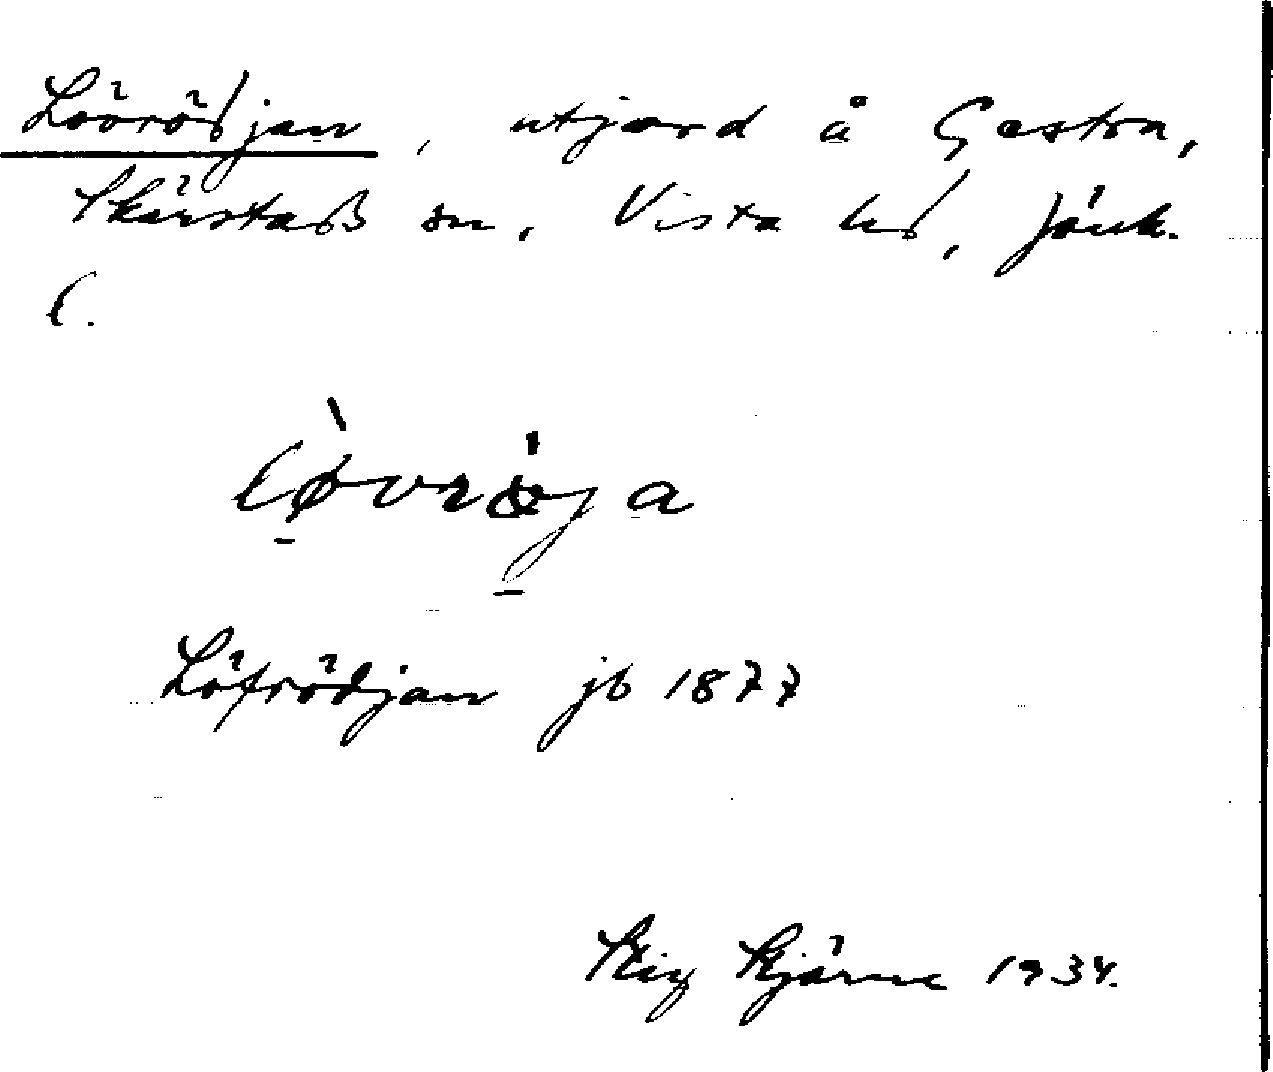 Lövrödjan, utjord å Gastra,
Skärstads sn, Vista hd, Jönk.
l.
Löfrödjan jb 1877
Stig Stjärne 1934.